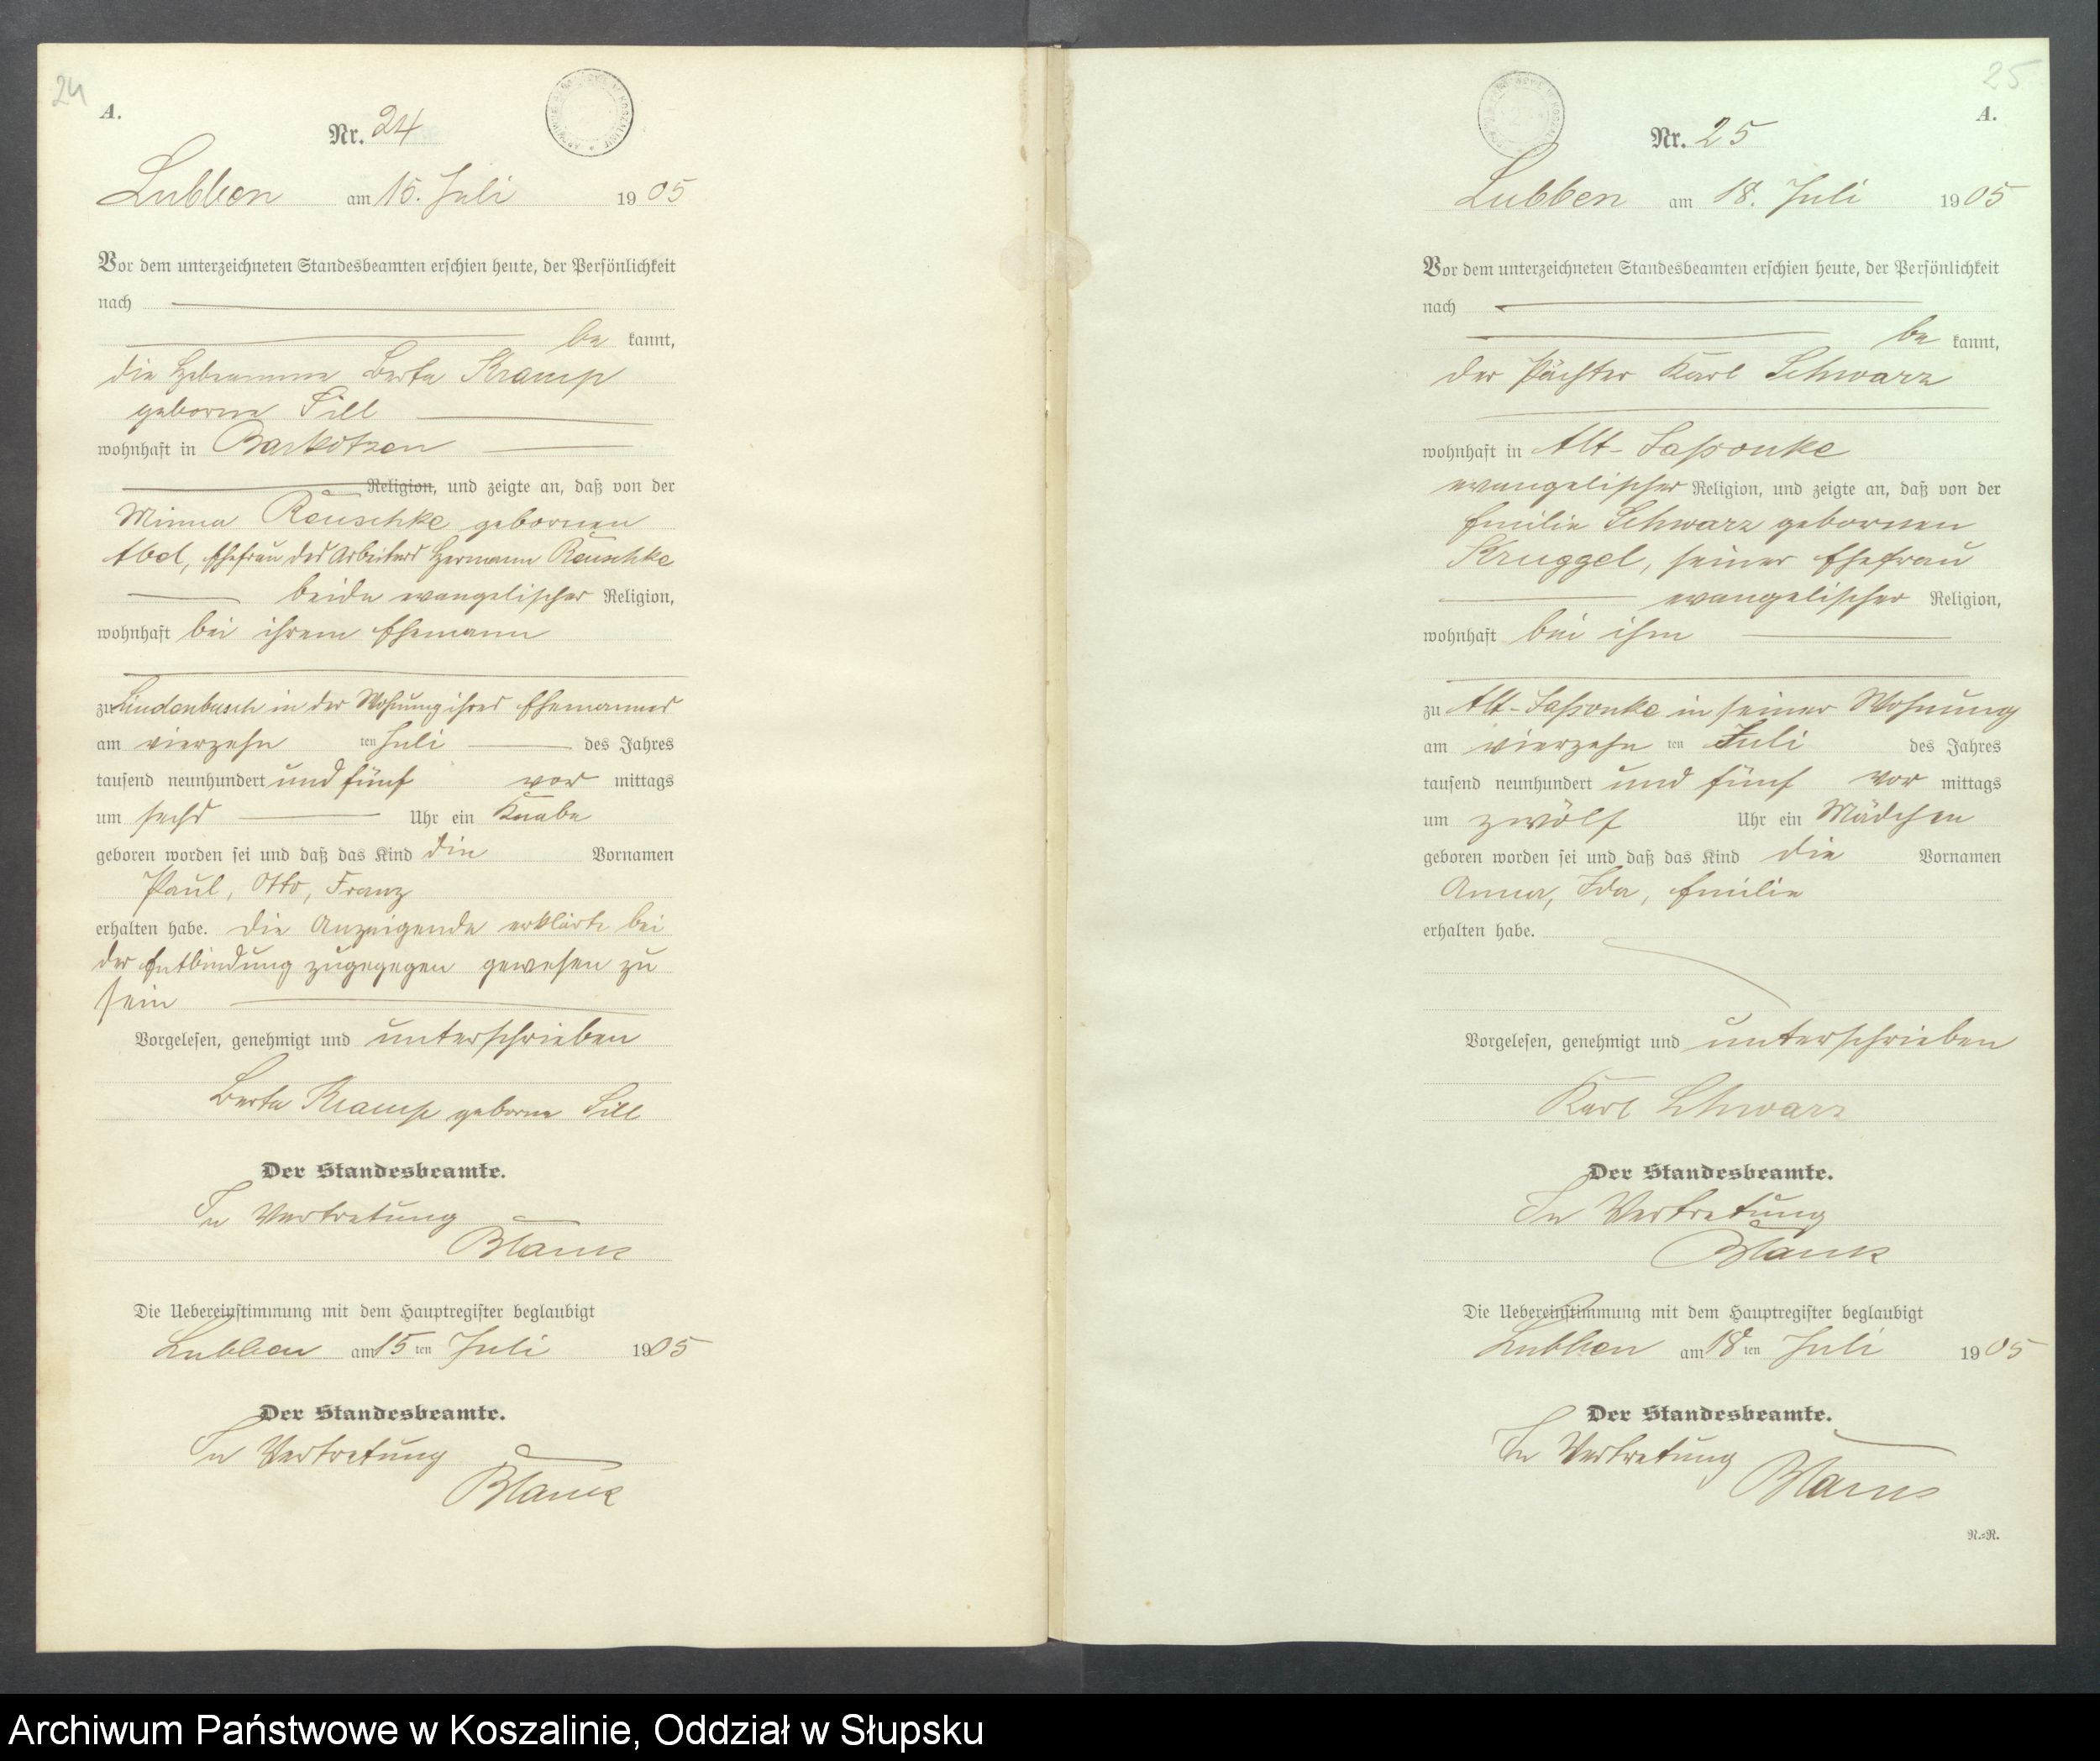 24
A.
Nr. 24
Lubben am 15. Juli 1905
Vor dem unterzeichneten Standesbeamten erschien heute, der Persönlichkeit
nach
be kannt,
die Hebamme Berta Kramp
geborene Sill
wohnhaft in Barkotzen
Religion, und zeigte an, daß von der
Minna Reuschke gebornen
Abel, Ehefrau des Arbeiters Hermann Reuschke
beide evangelischer Religion,
wohnhaft bei ihrem Ehemann
zu Lindenbusch in der Wohnung ihres Ehemannes
am vierzehn ten Juli des Jahres
tausend neunhundert und fünf vor mittags
um sechs Uhr ein Knabe
geboren worden sei und daß das Kind die Vornamen
Paul, Otto, Franz
erhalten habe. Die Anzeigende erklärte bei
der Entbindung zugegegen gewesen zu
sein
Vorgelesen, genehmigt und unterschrieben
Berta Kramp geborne Sill
Der Standesbeamte.
In Vertretung
Blank
Die Uebereinstimmung mit dem Hauptregister beglaubigt
Lubben am 15 ten Juli 1905
Der Standesbeamte.
In Vertretung
Blank
25
A.
Nr. 25
Lubben am 18. Juli 1905
Vor dem unterzeichneten Standesbeamten erschien heute, der Persönlichkeit
nach
be kannt,
der Pächter Karl Schwarz
wohnhaft in Alt-Jassonke
evangelischer Religion, und zeigte an, daß von der
Emilie Schwarz gebornen
Kruggel, seiner Ehefrau
evangelischer Religion,
wohnhaft bei ihm
zu Alt-Jassonke in seiner Wohnung
am vierzehn ten Juli des Jahres
tausend neunhundert und fünf vor mittags
um zwölf Uhr ein Mädchen
geboren worden sei und daß das Kind die Vornamen
Anna, Ida, Emilie
erhalten habe.
Vorgelesen, genehmigt und unterschrieben
Karl Schwarz
Der Standesbeamte.
In Vertretung
Blank
Die Uebereinstimmung mit dem Hauptregister beglaubigt
Lubben am 18 ten Juli 1905
Der Standesbeamte.
In Vertretung
Blank
N.-R.
Archiwum Państwowe w Koszalinie, Oddział w Słupsku